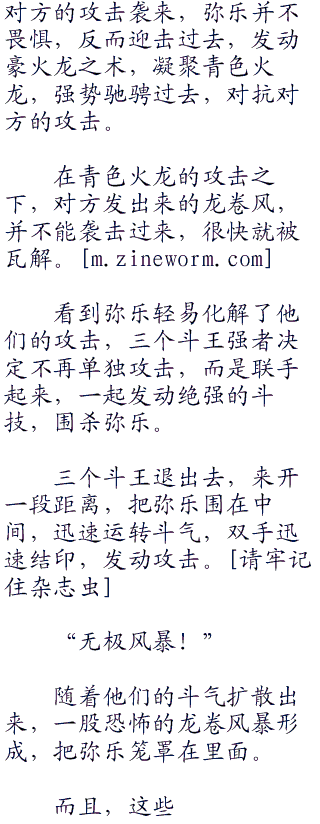 对方的攻击袭来，弥乐并不
畏惧，反而迎击过去，发动
豪火龙之术，凝聚青色火
龙，强势驰骋过去，对抗对
方的攻击。
在青色火龙的攻击之
下，对方发出来的龙卷风，
并不能袭击过来，很快就被
瓦解。[m.zineworm.com]
看到弥乐轻易化解了他
们的攻击，三个斗王强者决
定不再单独攻击，而是联手
起来，一起发动绝强的斗
技，围杀弥乐。
三个斗王退出去，来开
一段距离，把弥乐围在中
间，迅速运转斗气，双手迅
速结印，发动攻击。[请牢记
住杂志虫]
“无极风暴！”
随着他们的斗气扩散出
来，一股恐怖的龙卷风暴形
成，把弥乐笼罩在里面。
而且，这些